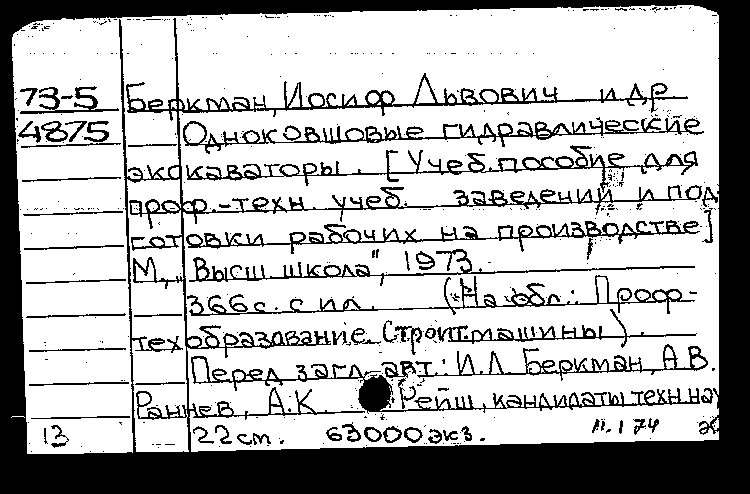 73-5 Беркман, Иосиф Львович и др
4875 Одноковшовые гидравлические
экскаваторы. [Учеб. пособие для
проф.-техн. учеб. заведений и под
готовки рабочих на производстве]
М., „Высш. школа", 1973.
366 с. с ил. (На обл.: Проф-
техобразование. Строит. машины).
Перед загл. авт.: И.Л. Беркман, А.В.
Раннев, А.К. Рейш, кандидаты техн. нау
13 22 см. 63000 экз. п. 1 74